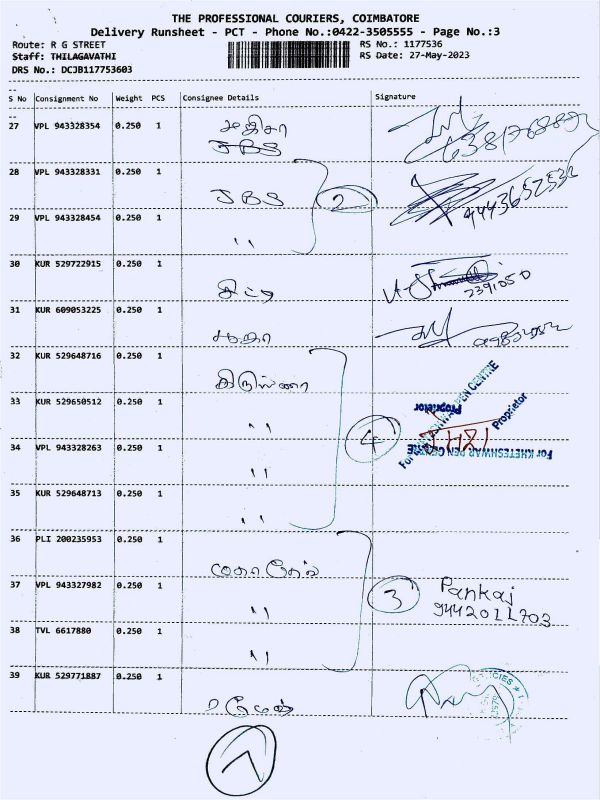 THE PROFESSIONAL COURIERS, COIMBATORE
Delivery Runsheet - PCT - Phone No.:0422-3505555 - Page No.:3
Route: R G STREET RS No.: 1177536
Staff: THILAGAVATHI RS Date: 27-May-2023
DRS No.: DCJB117753603
S No Consignment No Weight PCS Consignee Details Signature
27 VPL 943328354 0.250 1
JBS
28 VPL 943328331 0.250 1 JBS 2
29 VPL 943328454 0.250 1 ''
30 KUR 529722915 0.250 1
31 KUR 609053225 0.250 1
32 KUR 529648716 0.250 1
33 KUR 529650512 0.250 1 ''
4
Proprietor
Proprietor
For KHETESHWAR PEN CENTRE
34 VPL 943328263 0.250 1 ''
35 KUR 529648713 0.250 1 ''
36 PLI 200235953 0.250 1
37 VPL 943327982 0.250 1 '' 3 Pankaj
9442011703
38 TVL 6617880 0.250 1 ''
39 KUR 529771887 0.250 1
7